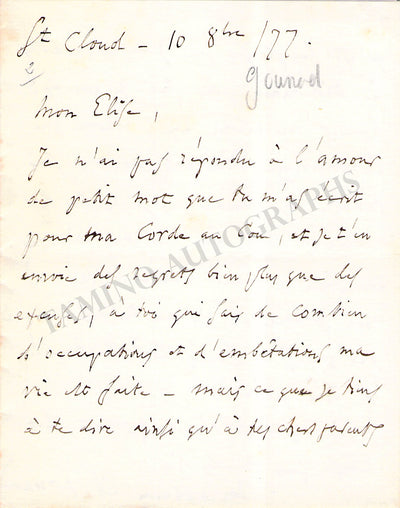 St Cloud - 10 8bre /77.
Gounod
Mon Elise,
Je n'ai pas répondu à l'amour
de petit mot que tu m'as écrit
pour ma Corde au Cou, et je t'en
envoie des regrets bien plus que des
excuses, à toi qui sais de combien
d'occupations et d'embêtations ma
vie est faite - mais ce que je tiens
à te dire ainsi qu'à tes chers parents
TAMINO AUTOGRAPHS